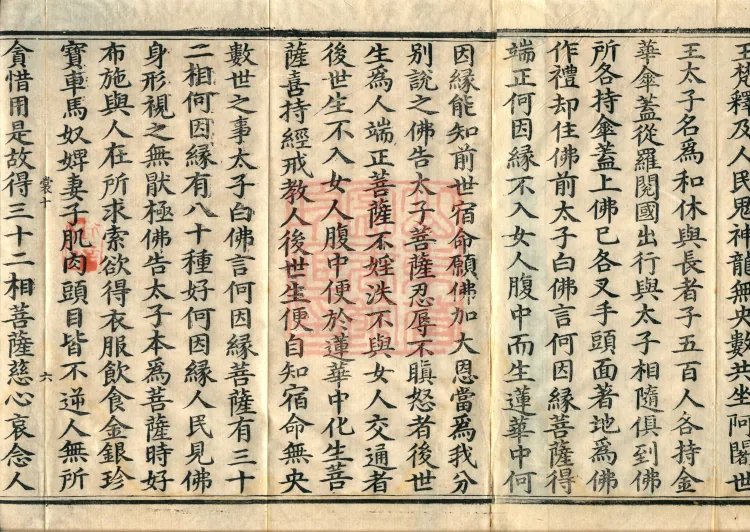 王梵釋及人民鬼神龍無央數共坐阿闍世
王太子名爲和休與長者子五百人各持金
華傘蓋從羅閱國出行與太子相隨俱到佛
所各持傘蓋上佛已各叉手頭面著地爲佛
作禮却住佛前太子白佛言何因緣菩薩得
端正何因緣不入女人腹中而生蓮華中何
因緣能知前世宿命願佛加大恩當爲我分
別說之佛告太子菩薩忍辱不瞋怒者後世
生爲人端正菩薩不婬泆不與女人交通者
後世生不入女人腹中便於蓮華中化生菩
薩喜持經戒教人後世生便自知宿命無央
數世之事太子白佛言何因緣菩薩有三十
二相何因緣有八十種好何因緣人民見佛
身形視之無猒極佛告太子本爲菩薩時好
布施與人在所求索欲得衣服飲食金銀珍
寶車馬奴婢妻子肌肉頭目皆不逆人無所
裳十
六
貪惜用是故得三十二相菩薩慈心哀念人